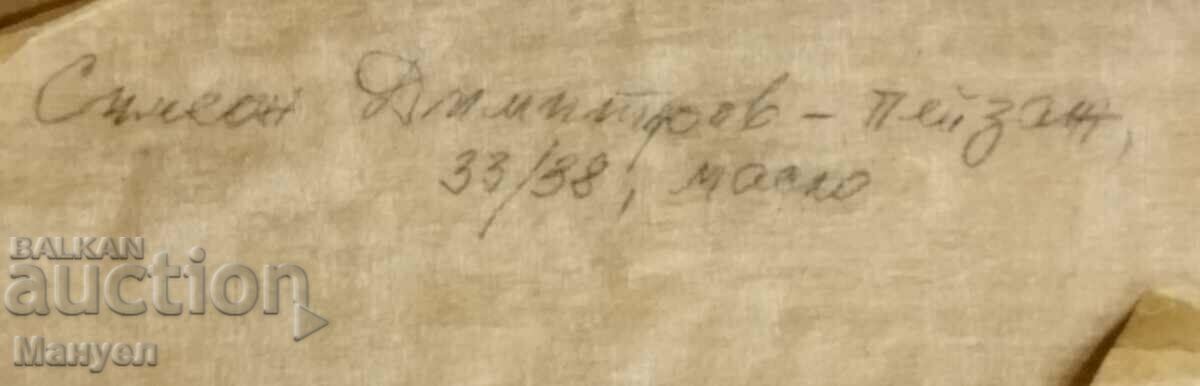 Симеон Димитров – пейзаж,
33/38, масло
BALKAN
auction
Мануел